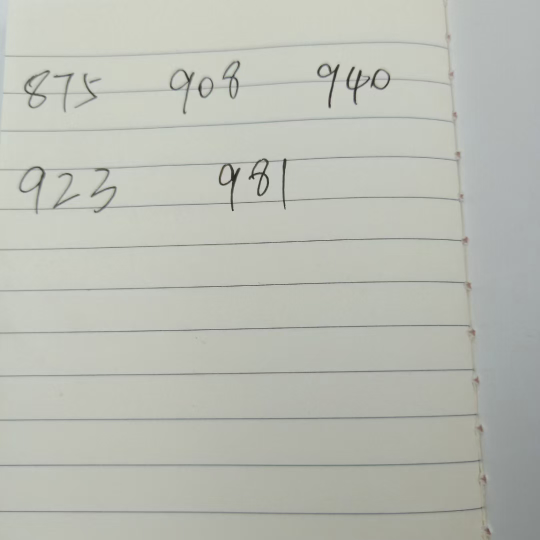 875 908 940
923 981